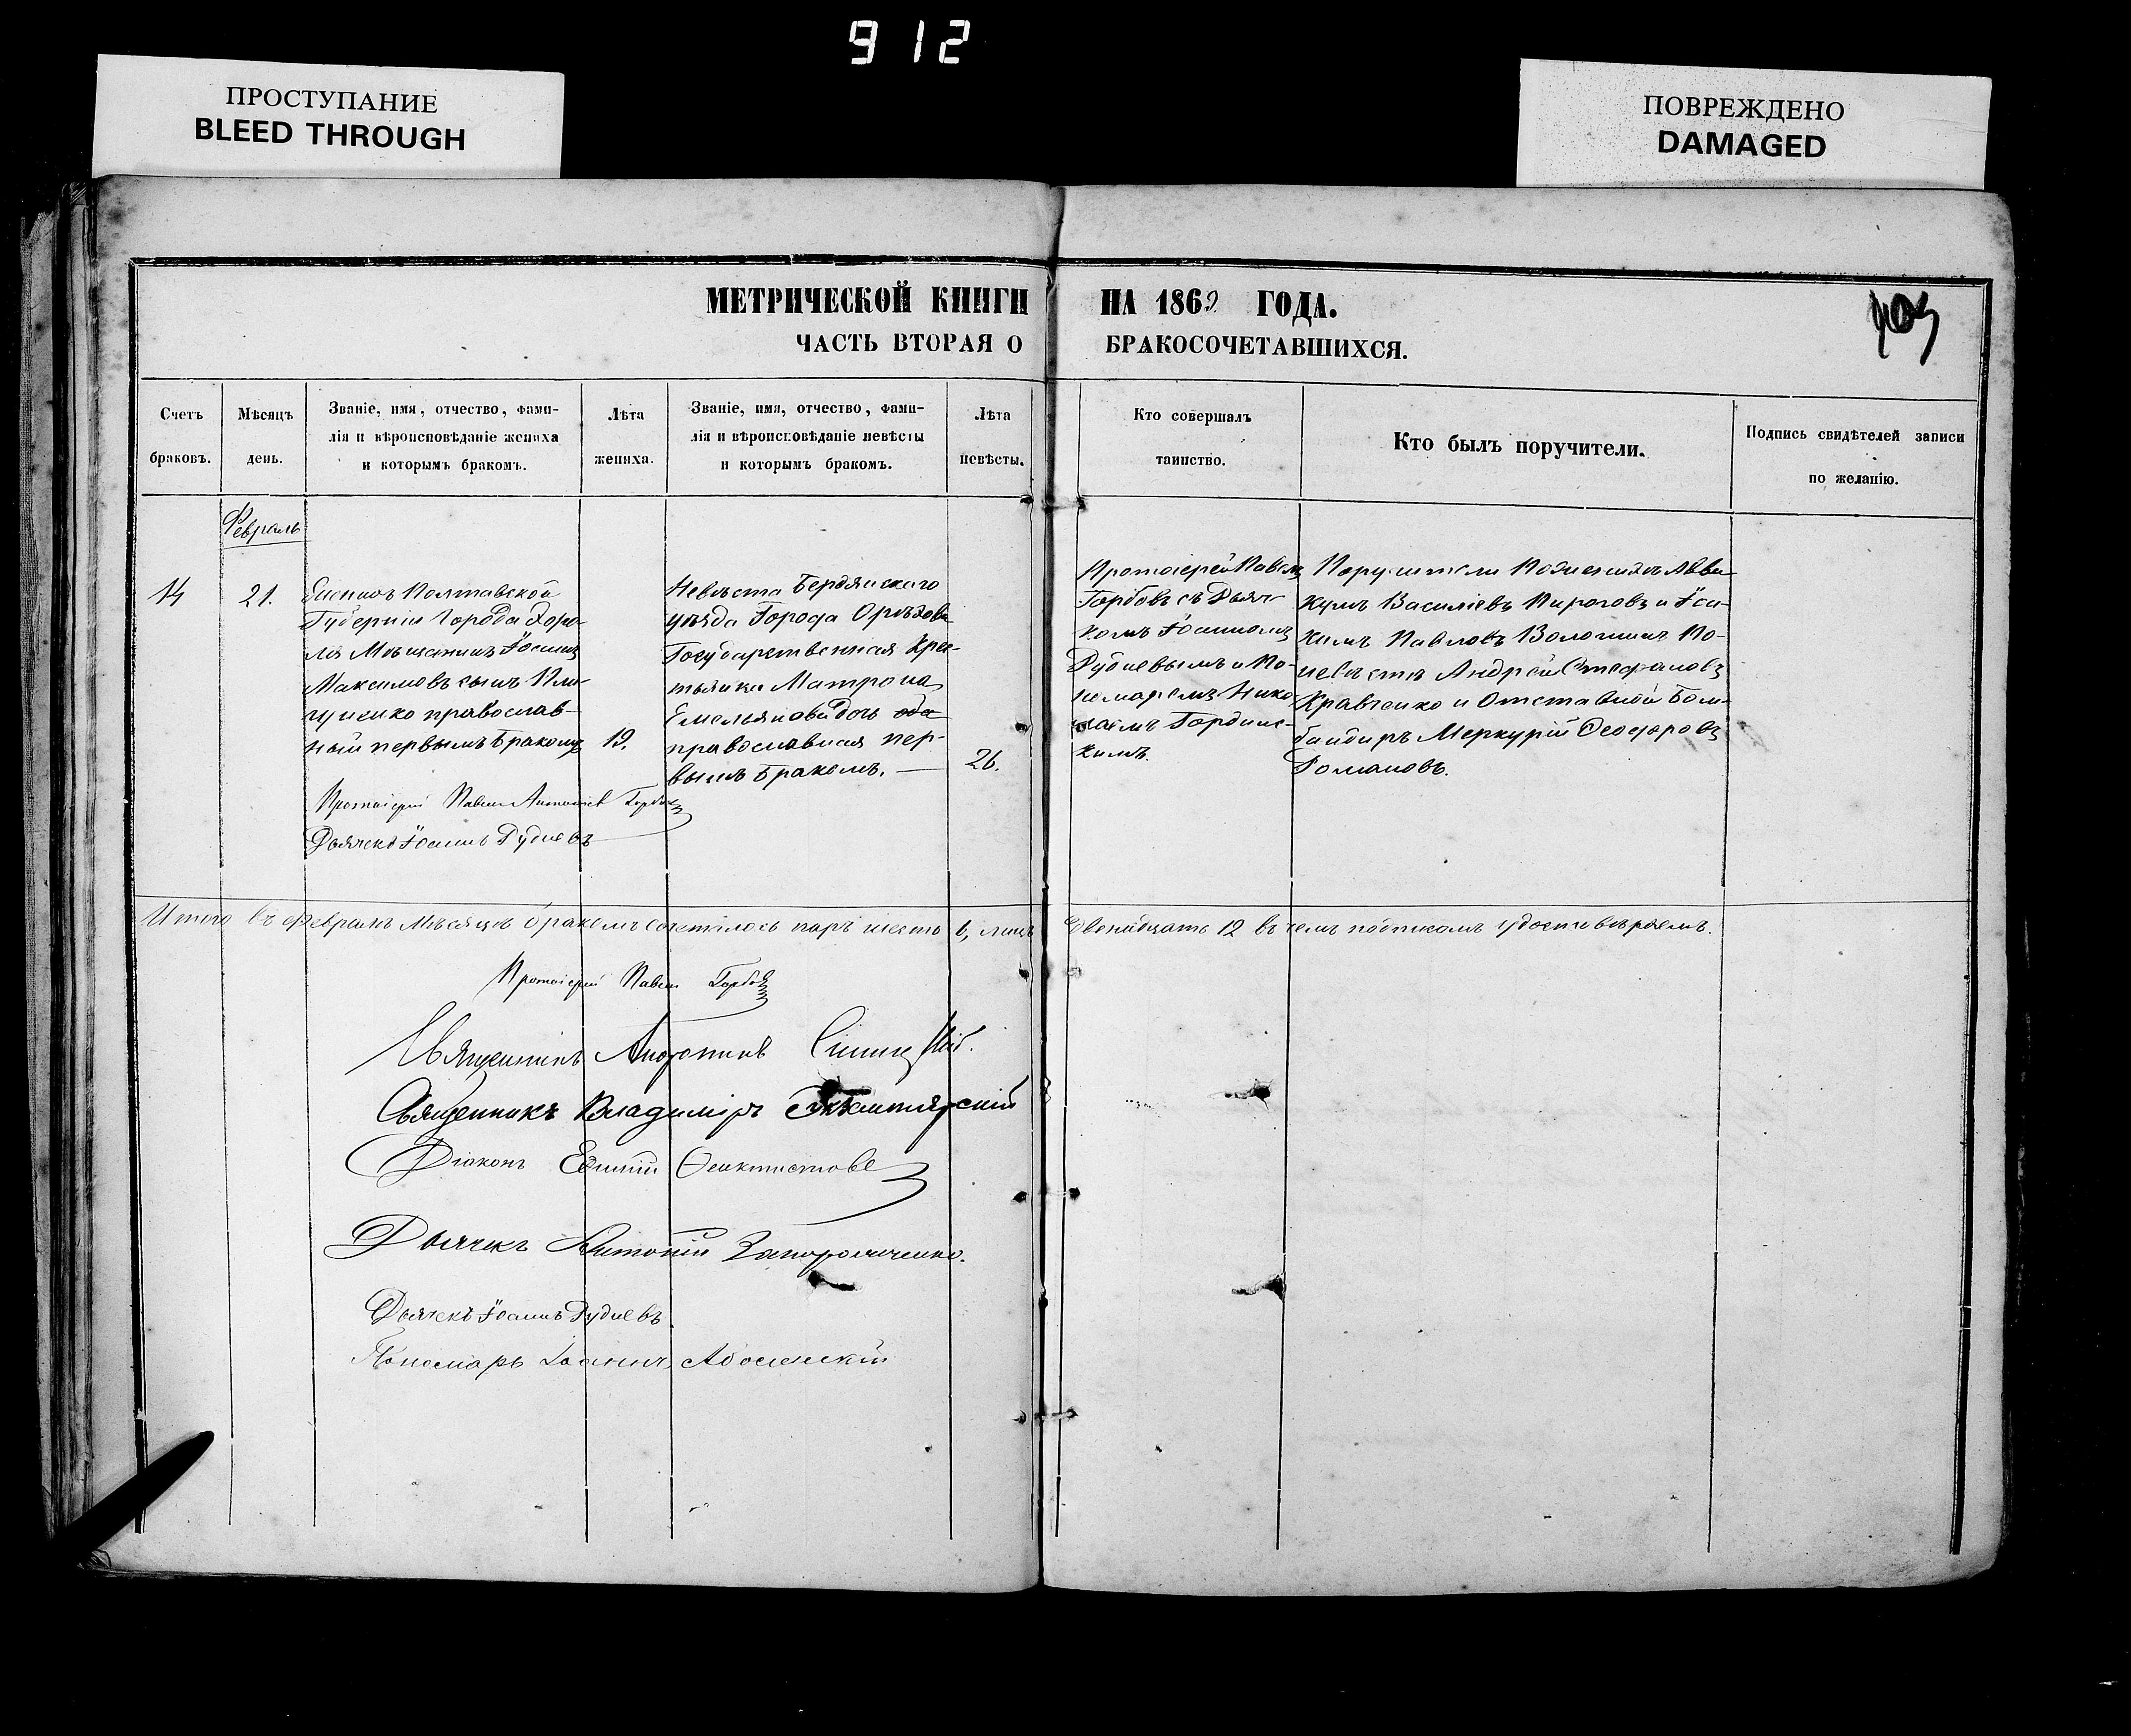 912
ПРОСТУПАНИЕ
BLEED THROUGH
ПОВРЕЖДЕНО
DAMAGED
МЕТРИЧЕСКОЙ КНИГИ НА 1862 ГОДА.
ЧАСТЬ ВТОРАЯ О БРАКОСОЧЕТАВШИХСЯ.
Счетъ
браковъ.
Мѣсяцъ
день.
Званіе, имя, отчество, фами-
лія и вѣроисповѣданіе жениха
и которымъ бракомъ.
Лѣта
жениха.
Званіе, имя, отчество, фами-
лія и вѣроисповѣданіе невѣсты
и которымъ бракомъ.
Лѣта
невѣсты.
Кто совершалъ
таинство.
Кто былъ поручители.
Подпись свидѣтелей записи
по желанію.
Февраль
14
21.
Женихъ Полтавской
Губерніи Города Хоро-
ля Мѣщанинъ Іоаннъ
Максимовъ сынъ
православ-
ный первымъ бракомъ
19.
Невѣста Бердянскаго
уѣзда Города Орѣхова
Государственная Крес-
тьянка Матрона
Емельянова дочь оба
православная пер-
вымъ бракомъ.
26.
Протоіерей Павелъ
Горбовъ съ Дьяч-
комъ Іоанномъ
Рудневымъ и По-
номаремъ Нико-
лаемъ Гординс-
кимъ.
Поручители По женихѣ Авва-
кумъ Василіевъ Пироговъ и Іоа-
кимъ Павловъ Волошинъ По
невѣстѣ Андрей Стефановъ
Кравченко и Отставной Бом-
бандиръ Меркурій Феодоровъ
Романовъ.
Протоіерей Павелъ Антоніев Горбовъ
Дьячекъ Іоаннъ Рудневъ
Итого въ Февралѣ Мѣсяцѣ бракомъ сочеталось паръ шесть 6, лицъ двенадцать 12 въ чемъ подписомъ удостовѣряемъ.
Протоіерей Павелъ Горбовъ
Священникъ
Священникъ Владиміръ
Діаконъ Ефимій Феоктистовъ
Дьячекъ Антоній Запорожченко.
Дьячекъ Іоаннъ Рудневъ
Пономарь Іоаннъ